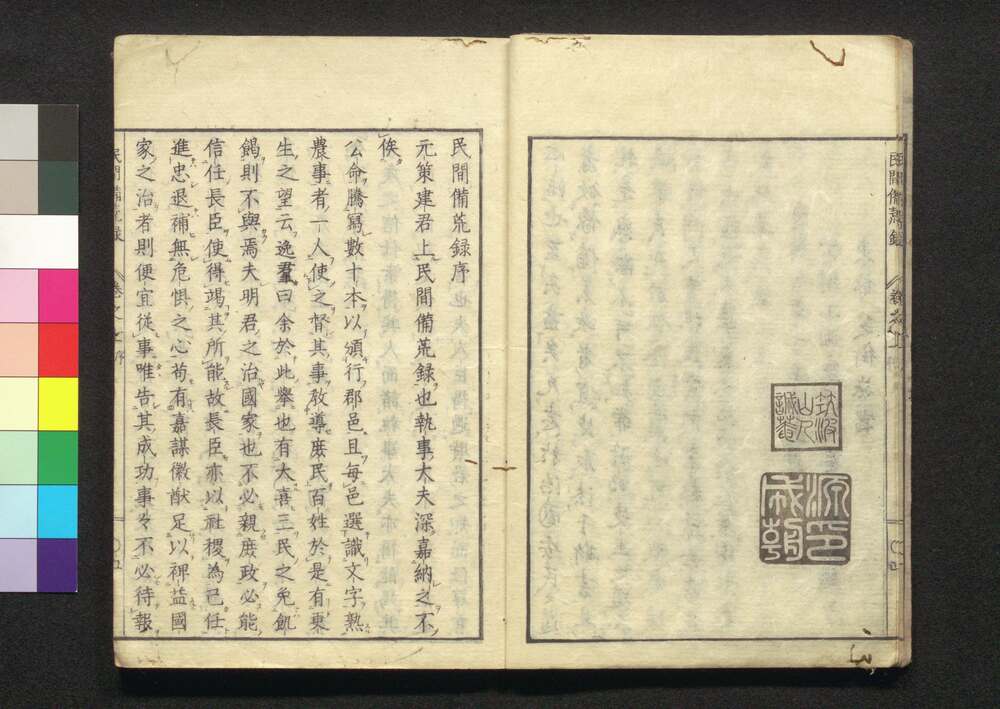 民間備荒録
卷之上
筑波
山人
誠菴
源印
成朝
民間備荒録序
元策建君上民間備荒録也執事大夫深嘉納之不
俟
公命騰寫數十本以頒行郡邑且每邑選識文字熟
農事者一人使之督其事教導庶民百姓於是有棄
生之望云逸羣曰余於此擧也有大喜三民之免飢
饉則不與焉夫明君之治國家也不必親庶政必能
信任長臣使得竭其所能故長臣亦以社稷為己任
進忠退補無危惧之心苟有嘉謀徽猷足以裨益國
家之治者則便宜從事唯告其成功事々不必待報
民間備荒録
卷之上
序